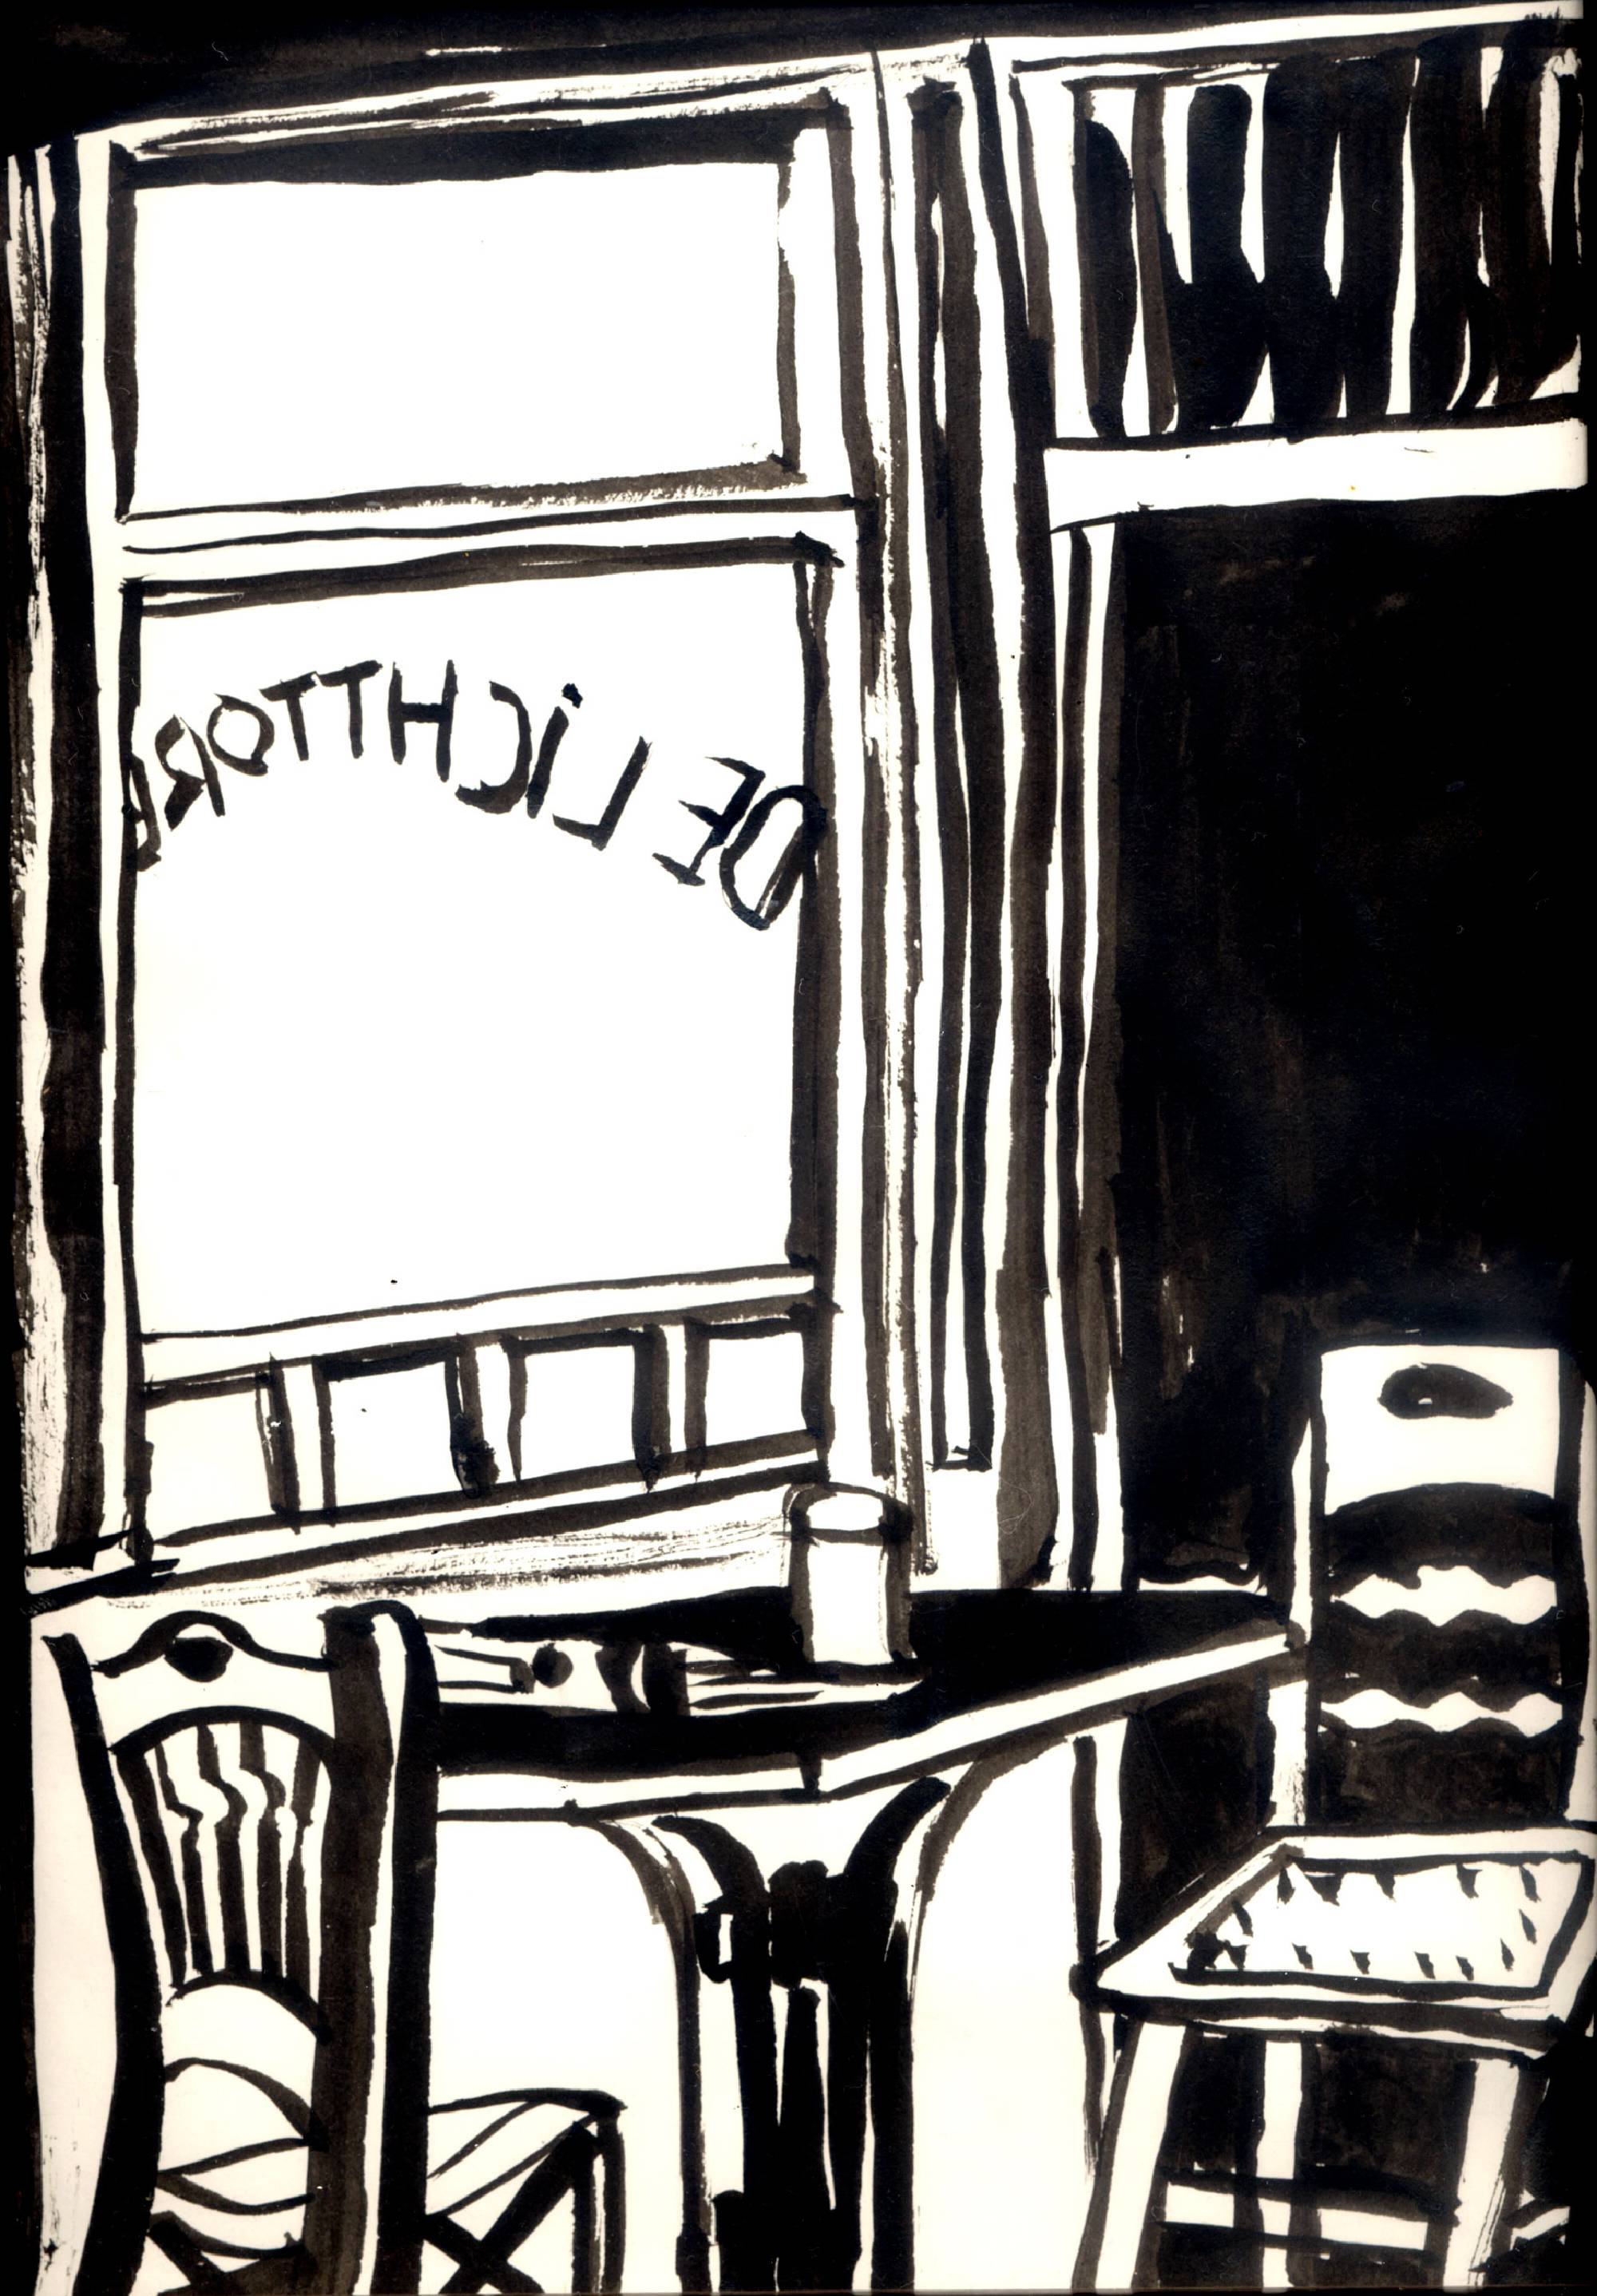 DE LiCHTTORE